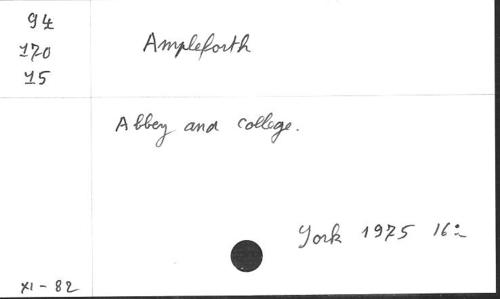 94
170
15
Ampleforth
Abbey and college.
York 1975 16º
XI - 82